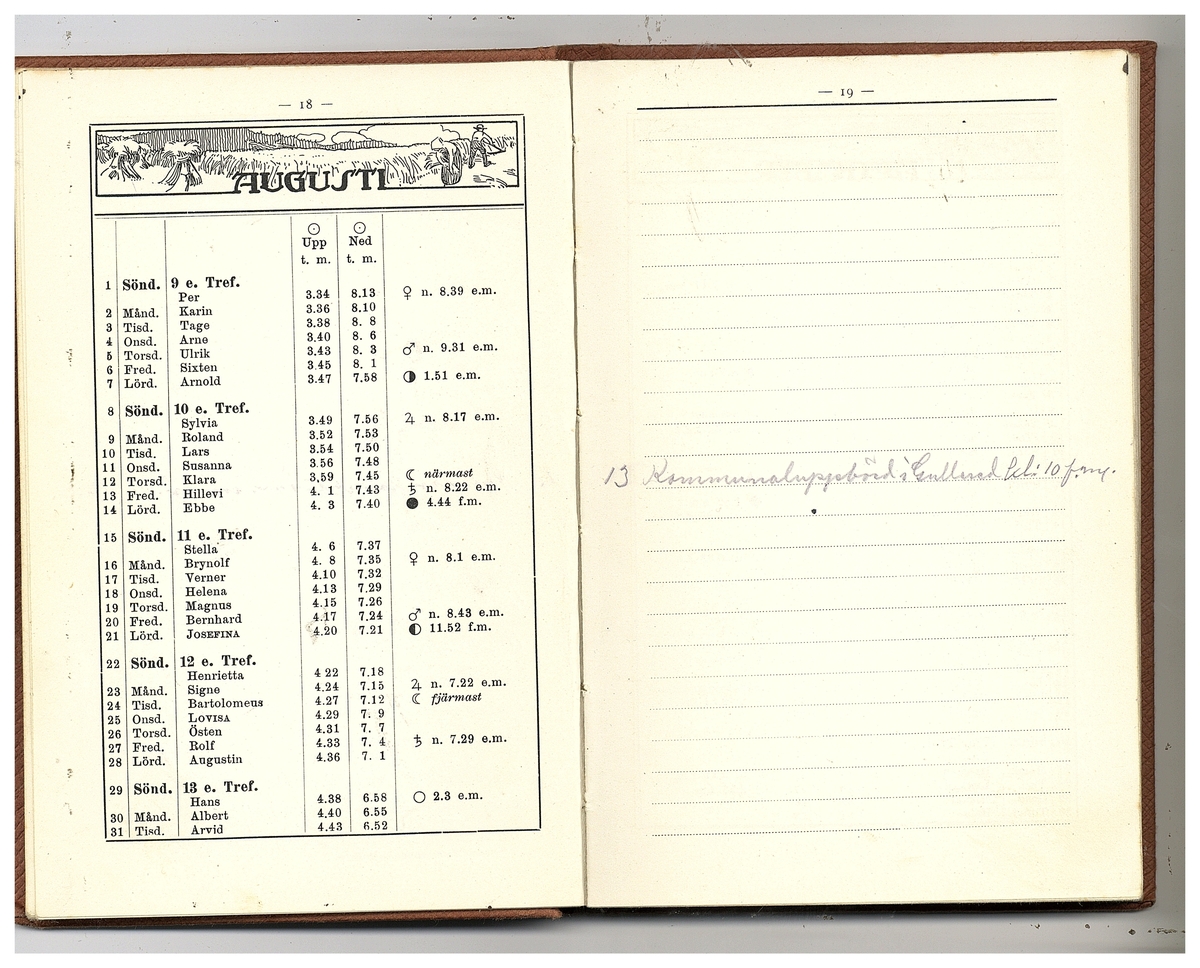 — 18 —
AUGUSTI
☉ ☉
Upp Ned
t. m. t. m.
1 Sönd. 9 e. Tref.
Per 3.34 8.13 ♀ n. 8.39 e.m.
2 Månd. Karin 3.36 8.10
3 Tisd. Tage 3.38 8. 8
4 Onsd. Arne 3.40 8. 6
5 Torsd. Ulrik 3.43 8. 3 ♂ n. 9.31 e.m.
6 Fred. Sixten 3.45 8. 1
7 Lörd. Arnold 3.47 7.58 ◑ 1.51 e.m.
8 Sönd. 10 e. Tref.
Sylvia 3.49 7.56 ♃ n. 8.17 e.m.
9 Månd. Roland 3.52 7.53
10 Tisd. Lars 3.54 7.50
11 Onsd. Susanna 3.56 7.48
12 Torsd. Klara 3,59 7.45 ☾ närmast
13 Fred. Hillevi 4. 1 7.43 ♄ n. 8.22 e.m.
14 Lörd. Ebbe 4. 3 7.40 ● 4.44 f.m.
15 Sönd. 11 e. Tref.
Stella 4. 6 7.37
16 Månd. Brynolf 4. 8 7.35 ♀ n. 8.1 e.m.
17 Tisd. Verner 4.10 7.32
18 Onsd. Helena 4.13 7.29
19 Torsd. Magnus 4.15 7.26
20 Fred. Bernhard 4.17 7.24 ♂ n. 8.43 e.m.
21 Lörd. JOSEFINA 4.20 7.21 ◐ 11.52 f.m.
22 Sönd. 12 e. Tref.
Henrietta 4 22 7.18
23 Månd. Signe 4.24 7.15 ♃ n. 7.22 e.m.
24 Tisd. Bartolomeus 4.27 7.12 ☾ fjärmast
25 Onsd. LOVISA 4.29 7. 9
26 Torsd. Östen 4.31 7. 7
27 Fred. Rolf 4.33 7. 4 ♄ n. 7.29 e.m.
28 Lörd. Augustin 4.36 7. 1
29 Sönd. 13 e. Tref.
Hans 4.38 6.58 ○ 2.3 e.m.
30 Månd. Albert 4.40 6.55
31 Tisd. Arvid 4.43 6.52
— 19 —
13 Kommunaluppbörd i kl: 10 f.m.